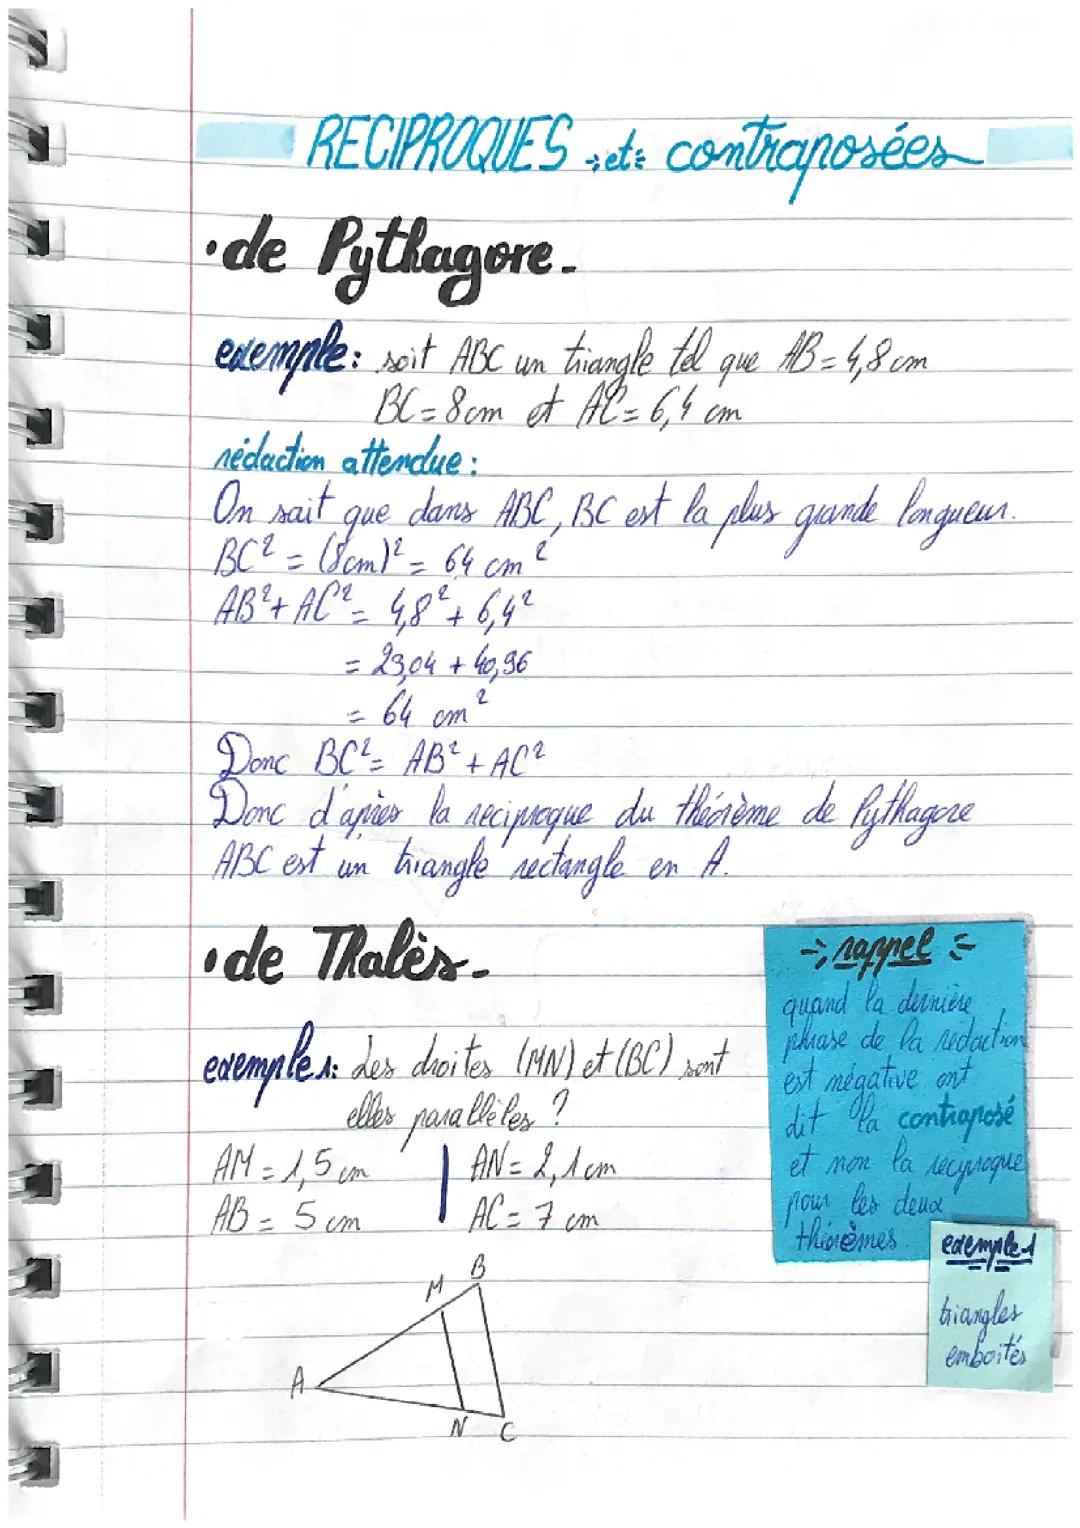 RECIPROQUES et contraposées
• de Pythagore.
exemple: soit ABC un triangle tel que AB = 4,8 cm
BC = 8 cm et AC = 6,4 cm
rédaction attendue :
On sait que dans ABC, BC est la plus grande longueur.
BC² = (8cm)² = 64 cm²
AB² + AC² = 4,8² + 6,4²
= 23,04 + 40,96
= 64 cm²
Donc BC² = AB² + AC²
Donc d'après la reciproque du théorème de Pythagore
ABC est un triangle rectangle en A.
• de Thalès.
exemple 1: Les droites (MN) et (BC) sont
elles parallèles ?
AM = 1,5 cm | AN = 2,1 cm
AB = 5 cm | AC = 7 cm
B
M
A
N C
rappel
quand la dernière
phrase de la redaction
est négative ont
dit la contraposé
et non la recyproque
pour les deux
théorèmes.
exemple 1
triangles
emboités